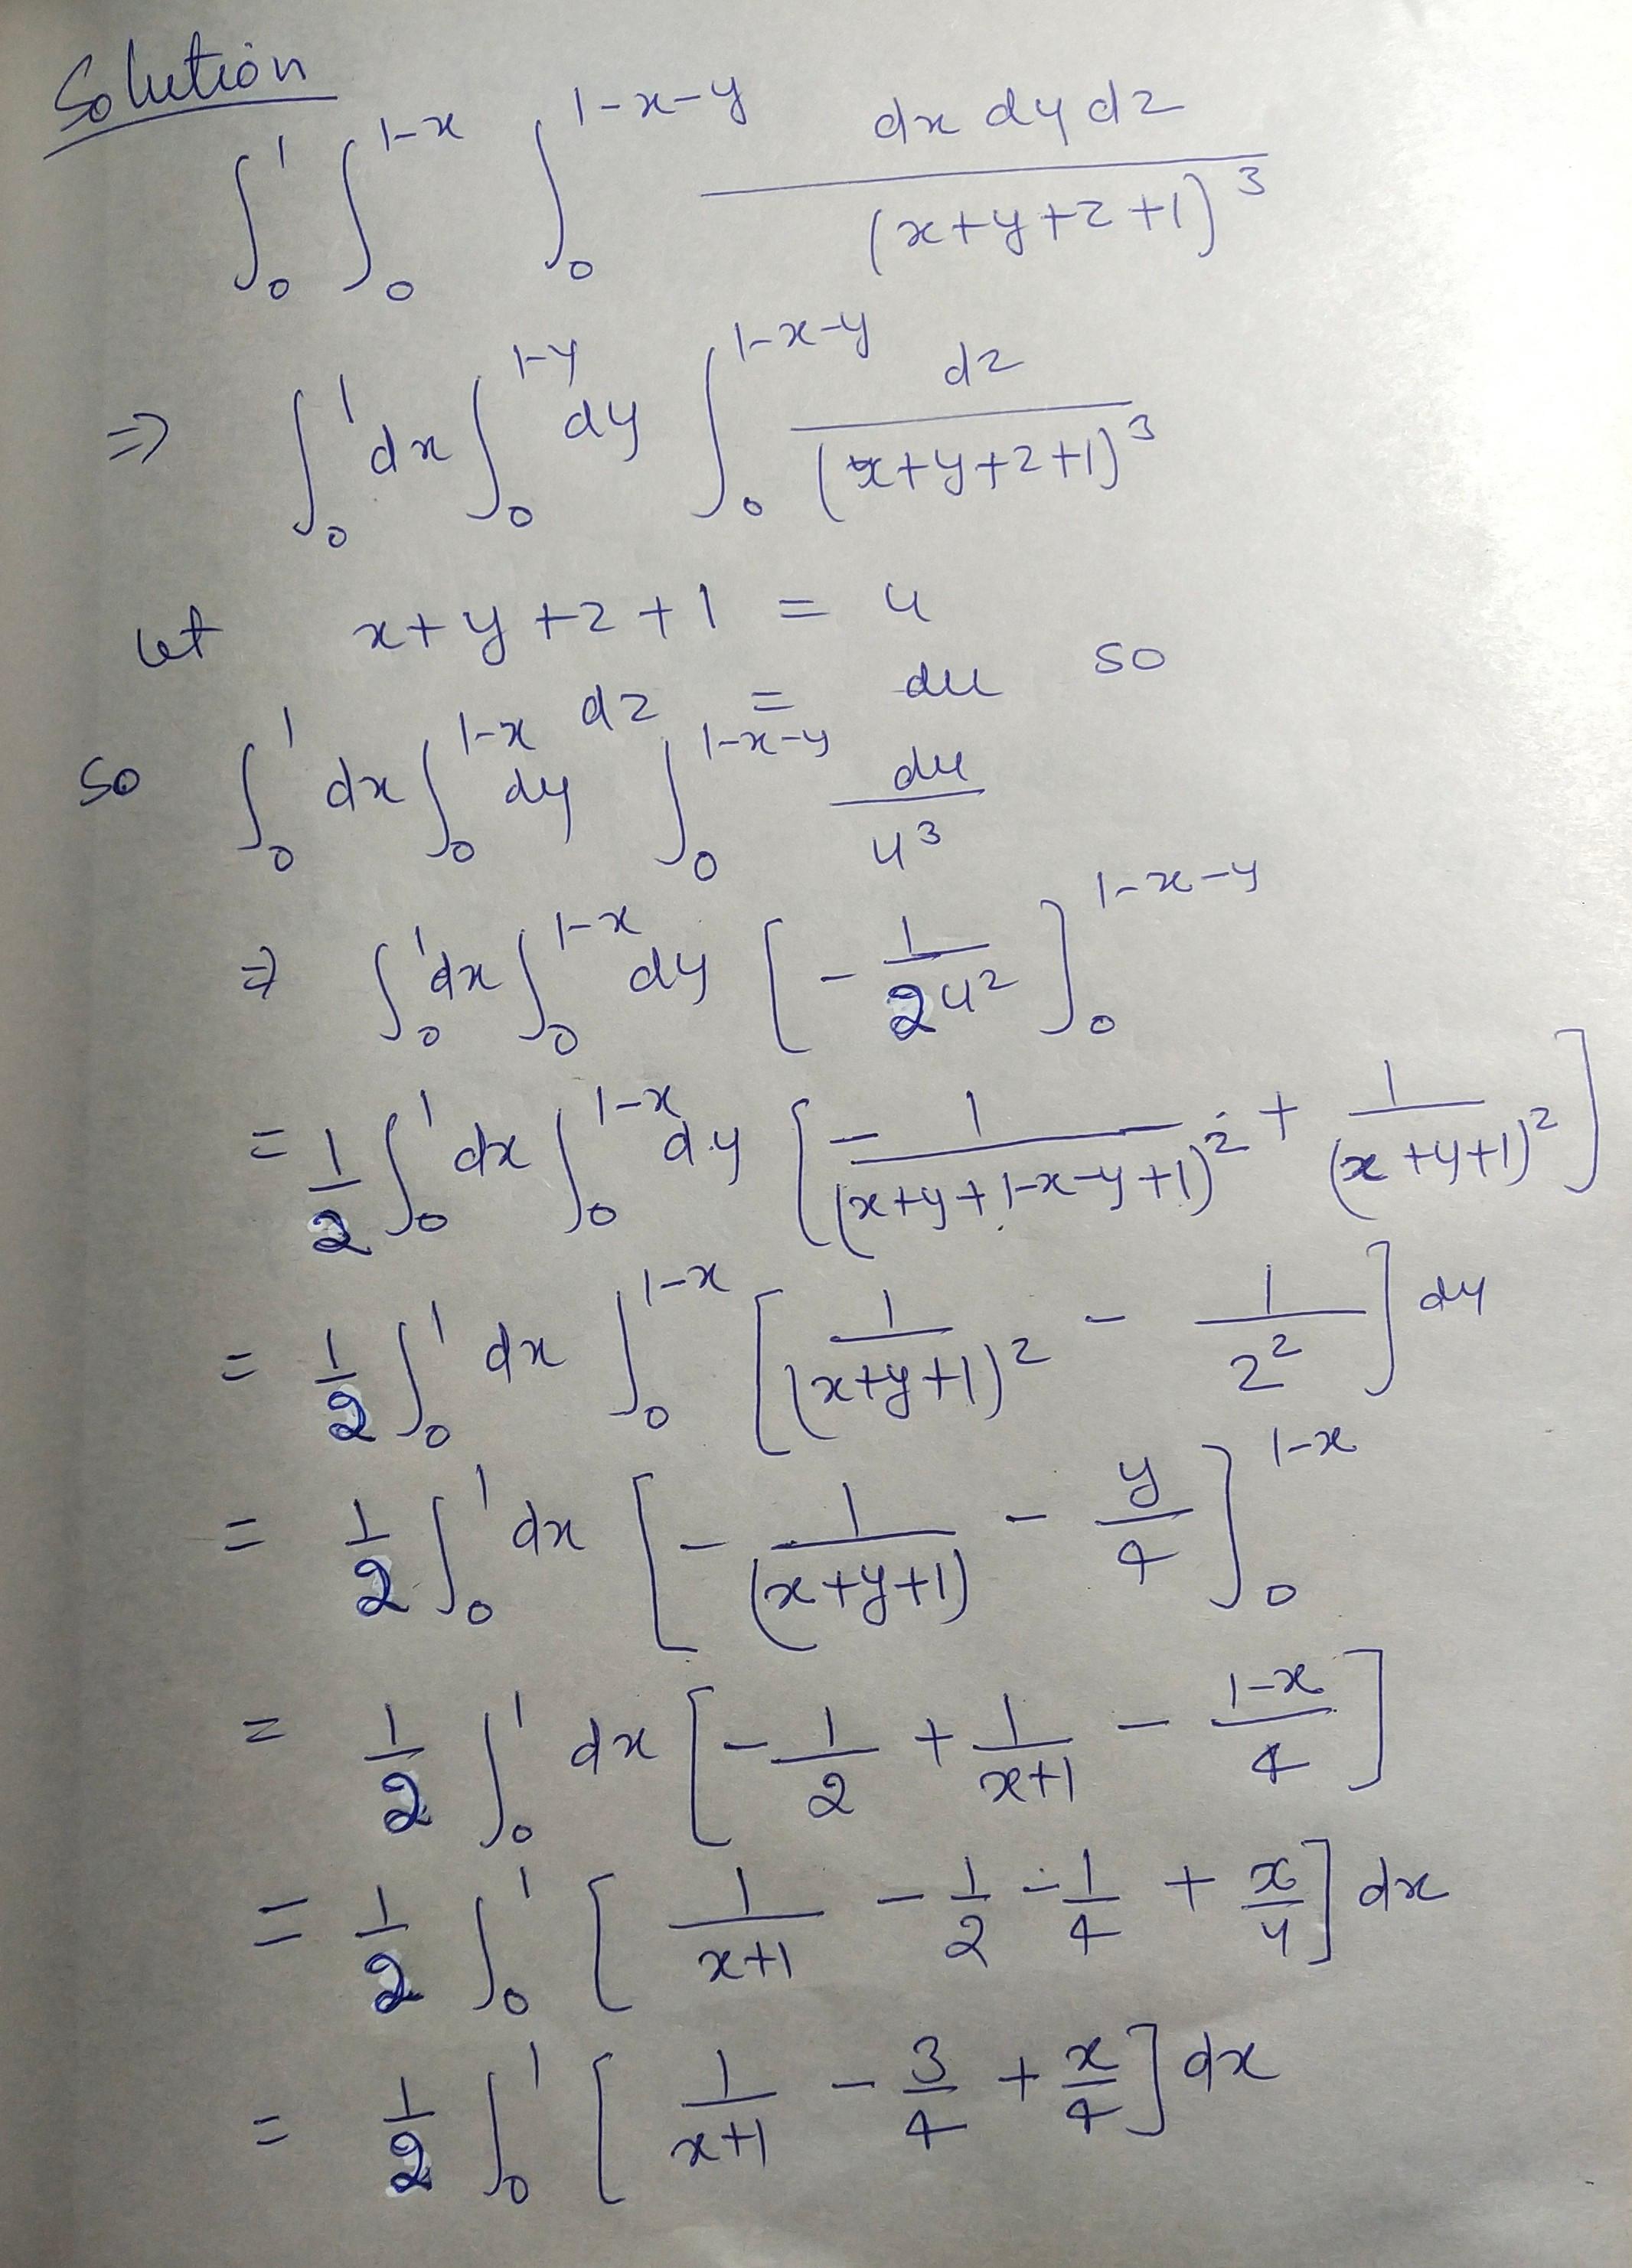 Solution
∫₀¹ ∫₀^{1-x} ∫₀^{1-x-y} dx dy dz / (x+y+z+1)³
⇒ ∫₀¹ dx ∫₀^{1-y} dy ∫₀^{1-x-y} dz / (x+y+z+1)³
let x+y+z+1 = u
dz = du so
so ∫₀¹ dx ∫₀^{1-x} dy ∫₀^{1-x-y} du / u³
⇒ ∫₀¹ dx ∫₀^{1-x} dy [ - 1/(2u²) ]₀^{1-x-y}
= 1/2 ∫₀¹ dx ∫₀^{1-x} dy [ - 1/(x+y+1-x-y+1)² + 1/(x+y+1)² ]
= 1/2 ∫₀¹ dx ∫₀^{1-x} [ 1/(x+y+1)² - 1/2² ] dy
= 1/2 ∫₀¹ dx [ - 1/(x+y+1) - y/4 ]₀^{1-x}
= 1/2 ∫₀¹ dx [ - 1/2 + 1/(x+1) - (1-x)/4 ]
= 1/2 ∫₀¹ [ 1/(x+1) - 1/2 - 1/4 + x/4 ] dx
= 1/2 ∫₀¹ [ 1/(x+1) - 3/4 + x/4 ] dx